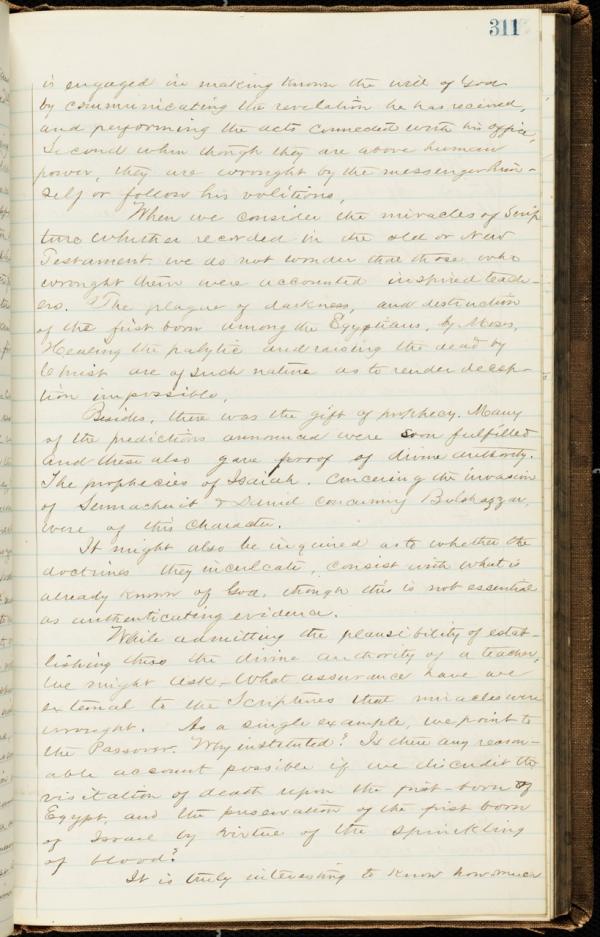 311
is engaged in making known the will of God
by communicating the revelation he has received,
and performing the acts connected with his office,
Second when though they are above human
power, they are wrought by the messenger him-
self or follow his volitions,
When we consider the miracles of Scrip
ture whether recorded in the old or New
Testament we do not wonder that those who
wrought them were accounted inspired teach-
ers. The plague of darkness, and destruction
of the first born among the Egyptians, by Moses,
Healing the palytic and raising the dead by
Christ are of such nature as to render decep-
tion impossible,
Besides, there was the gift of prophecy. Many
of the predictions announced were soon fulfilled
and these also gave proof of divine authority.
The prophecies of Isaiah. concering the invasion
of Sennacherit & Daniel concerning Belshazzar,
were of this character.
It might also be inquired as to whether the
doctrines they inculcate, consist with what is
already known of God, though this is not essential
as authenticating evidence.
While admitting the plausibility of estab-
lishing thus the divine authority of a teacher,
we might ask - What assurance have we
external to the Scriptures that miracles were
wrought. As a single example, we point to
the Passover. Why instituted? Is there any reason-
able account possible if we discredit the
visitation of death upon the first-born of
Egypt, and the preservation of the first born
of Israel by virtue of the sprinkling
of blood?
It is truly interesting to know how much